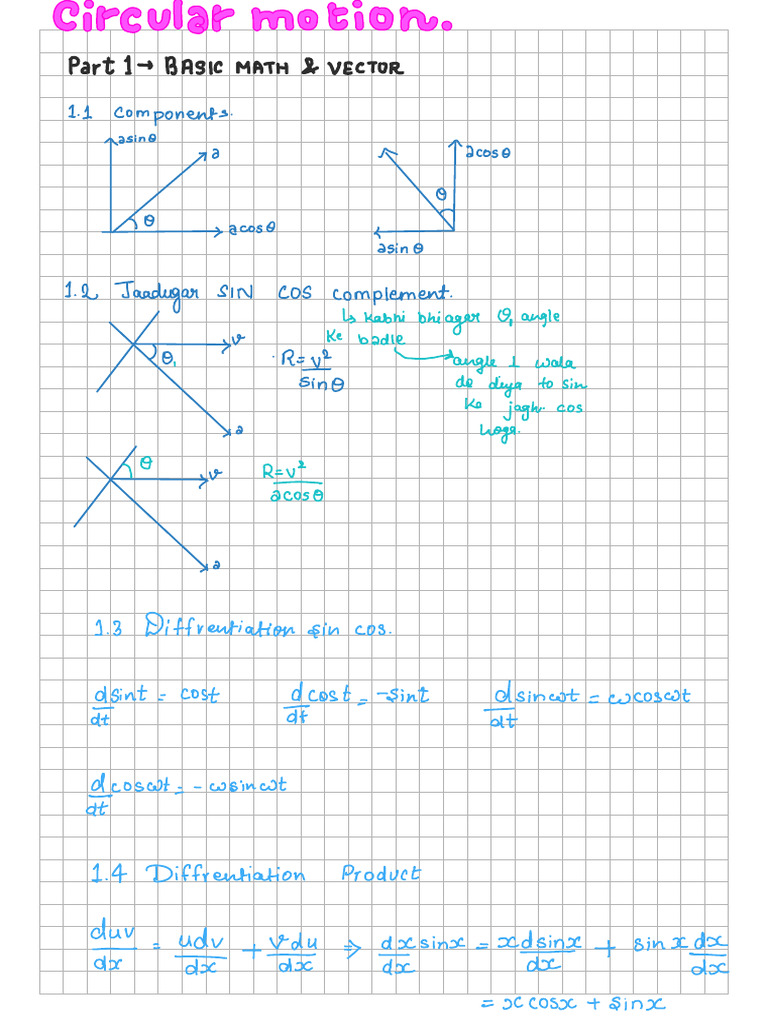 Circular motion.
Part 1 → BASIC MATH & VECTOR
1.1 Components.
asinθ
a
θ
acosθ
acosθ
θ
asinθ
1.2 Jaadugar SIN COS complement.
↳ kabhi bhi agar θ, angle
ke badle
angle ⊥ wala
de diya to sin
ke jagh cos
hoga.
v
θ₁
a
R = v²
sinθ
θ
v
a
R = v²
acosθ
1.3 Diffrentiation sin cos.
d sint = cost d cost = -sint d sinωt = ωcosωt
dt dt dt
d cosωt = - ωsinωt
dt
1.4 Diffrentiation Product
duv = udv + vdu ⇒ dxsinx = xdsinx + sinx dx
dx dx dx dx dx dx
= xcosx + sinx